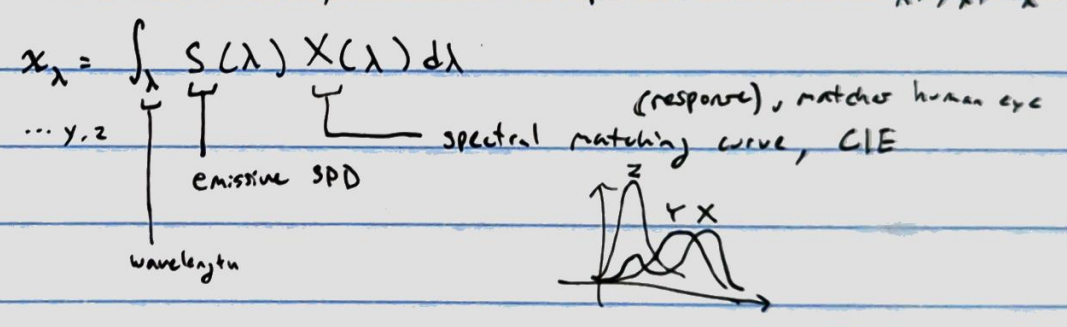 x_λ = ∫_λ S(λ) X(λ) dλ
(response), matches human eye
... y, z
spectral matching curve, CIE
emissive SPD
Z
Y X
wavelength